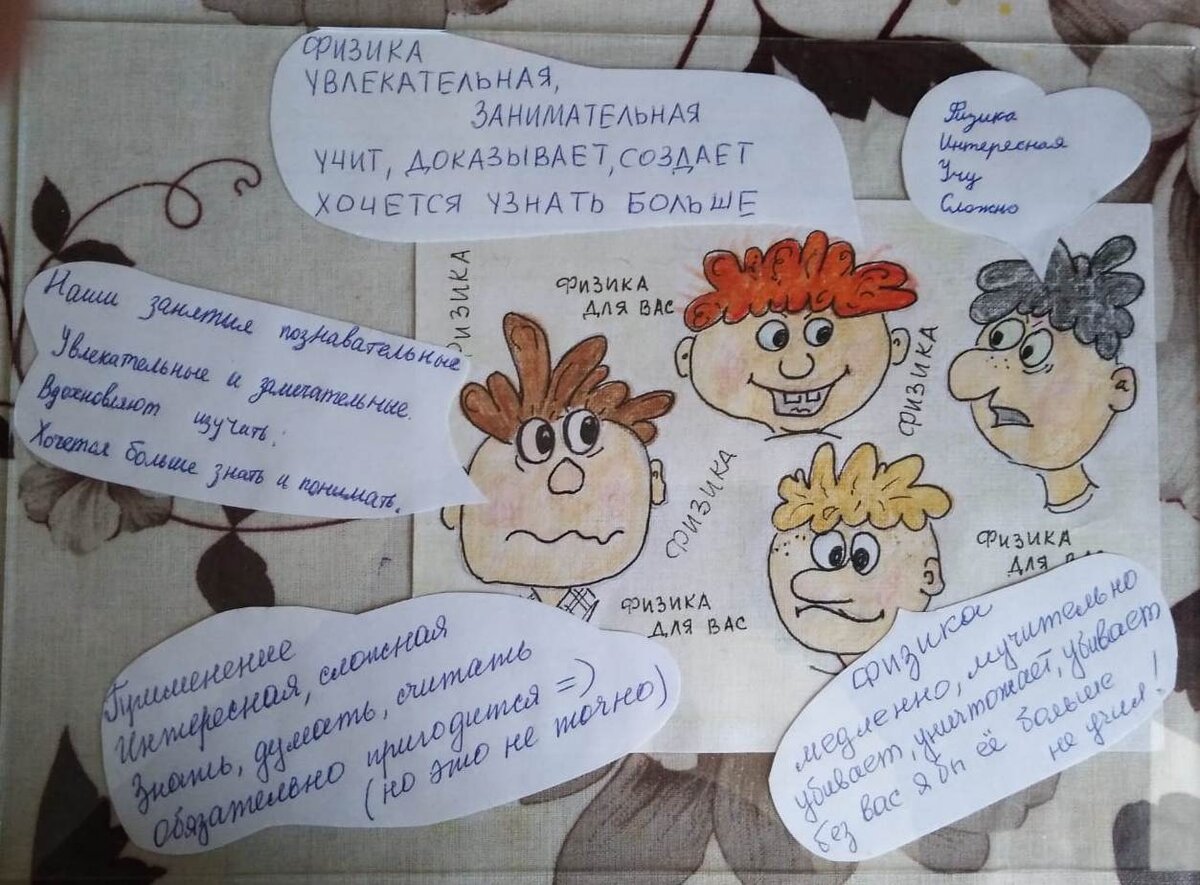 ФИЗИКА
УВЛЕКАТЕЛЬНАЯ,
ЗАНИМАТЕЛЬНАЯ
УЧИТ, ДОКАЗЫВАЕТ, СОЗДАЕТ
ХОЧЕТСЯ УЗНАТЬ БОЛЬШЕ
Физика
Интересная
Учу
Сложно
Наши занятия познавательные
Увлекательные и замечательные.
Вдохновляют изучить.
Хочется больше знать и понимать.
ФИЗИКА
ФИЗИКА
ДЛЯ ВАС
ФИЗИКА
ФИЗИКА
ФИЗИКА
ДЛЯ ВАС
ФИЗИКА
ДЛЯ ВАС
Применение
Интересная, сложная
Знать, думать, считать
обязательно пригодится =)
(но это не точно)
физика
медленно, мучительно
убивает, уничтожает, убивает
без вас я бы её больше
не учил!